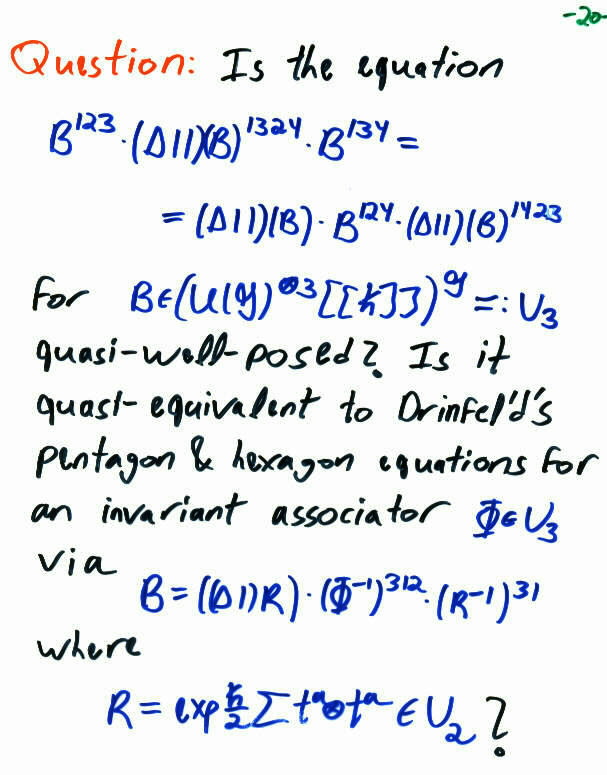 -20-
Question: Is the equation
B¹²³·(Δ11)(B)¹³²⁴·B¹³⁴=
=(Δ11)(B)·B¹²⁴·(Δ11)(B)¹⁴²³
for B∈(U(𝔤)^⊗3[[ħ]])^𝔤=:U₃
quasi-well-posed? Is it
quasi-equivalent to Drinfel'd's
pentagon & hexagon equations for
an invariant associator Φ∈U₃
via
B=((Δ1)R)·(Φ⁻¹)³¹²·(R⁻¹)³¹
where
R=exp ħ/2 Σ tᵃ⊗tᵃ ∈ U₂?